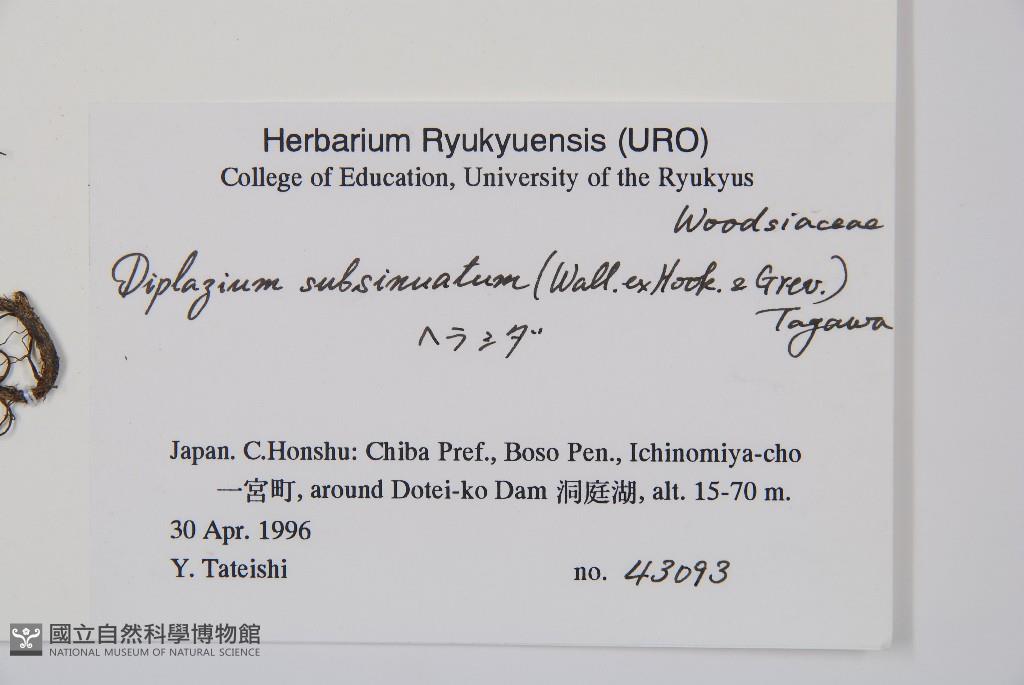 Herbarium Ryukyuensis (URO)
College of Education, University of the Ryukyus
Woodsiaceae
Diplazium subsinuatum (Wall. ex Hook. & Grev.)
Tagawa
ヘラシダ
Japan. C.Honshu: Chiba Pref., Boso Pen., Ichinomiya-cho
一宮町, around Dotei-ko Dam 洞庭湖, alt. 15-70 m.
30 Apr. 1996
Y. Tateishi no. 43093
國立自然科學博物館
NATIONAL MUSEUM OF NATURAL SCIENCE